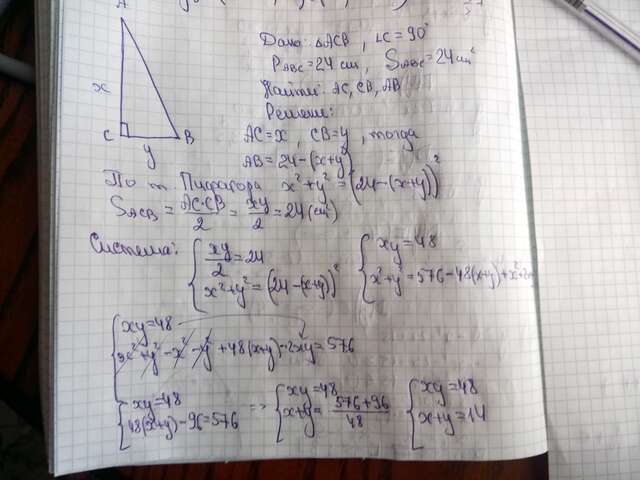 A
x
C
B
y
Дано: △ACB, ∠C = 90°
P_ABC = 24 cm, S_ABC = 24 cm²
Найти: AC, CB, AB
Решение:
AC = x, CB = y, тогда
AB = 24 - (x+y)
По т. Пифагора x² + y² = (24 - (x+y))²
S_ACB = AC·CB/2 = xy/2 = 24 (cm²)
Система: { xy/2 = 24 { xy = 48
x² + y² = (24 - (x+y))² x² + y² = 576 - 48(x+y) + x² + 2
{ xy = 48
x² + y² - x² - y² + 48(x+y) - 2xy = 576
{ xy = 48 => { xy = 48 { xy = 48
48(x+y) - 96 = 576 x+y = 576+96/48 x+y = 14